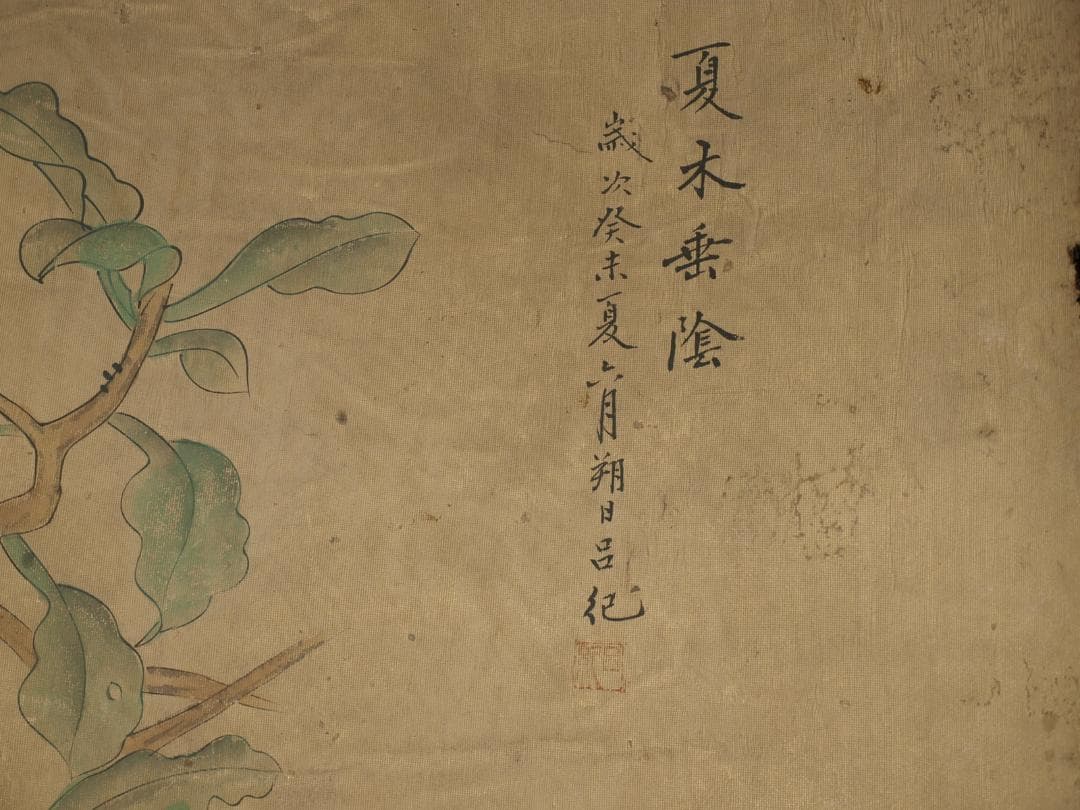 夏木垂陰
歲次癸未夏六月朔日呂紀